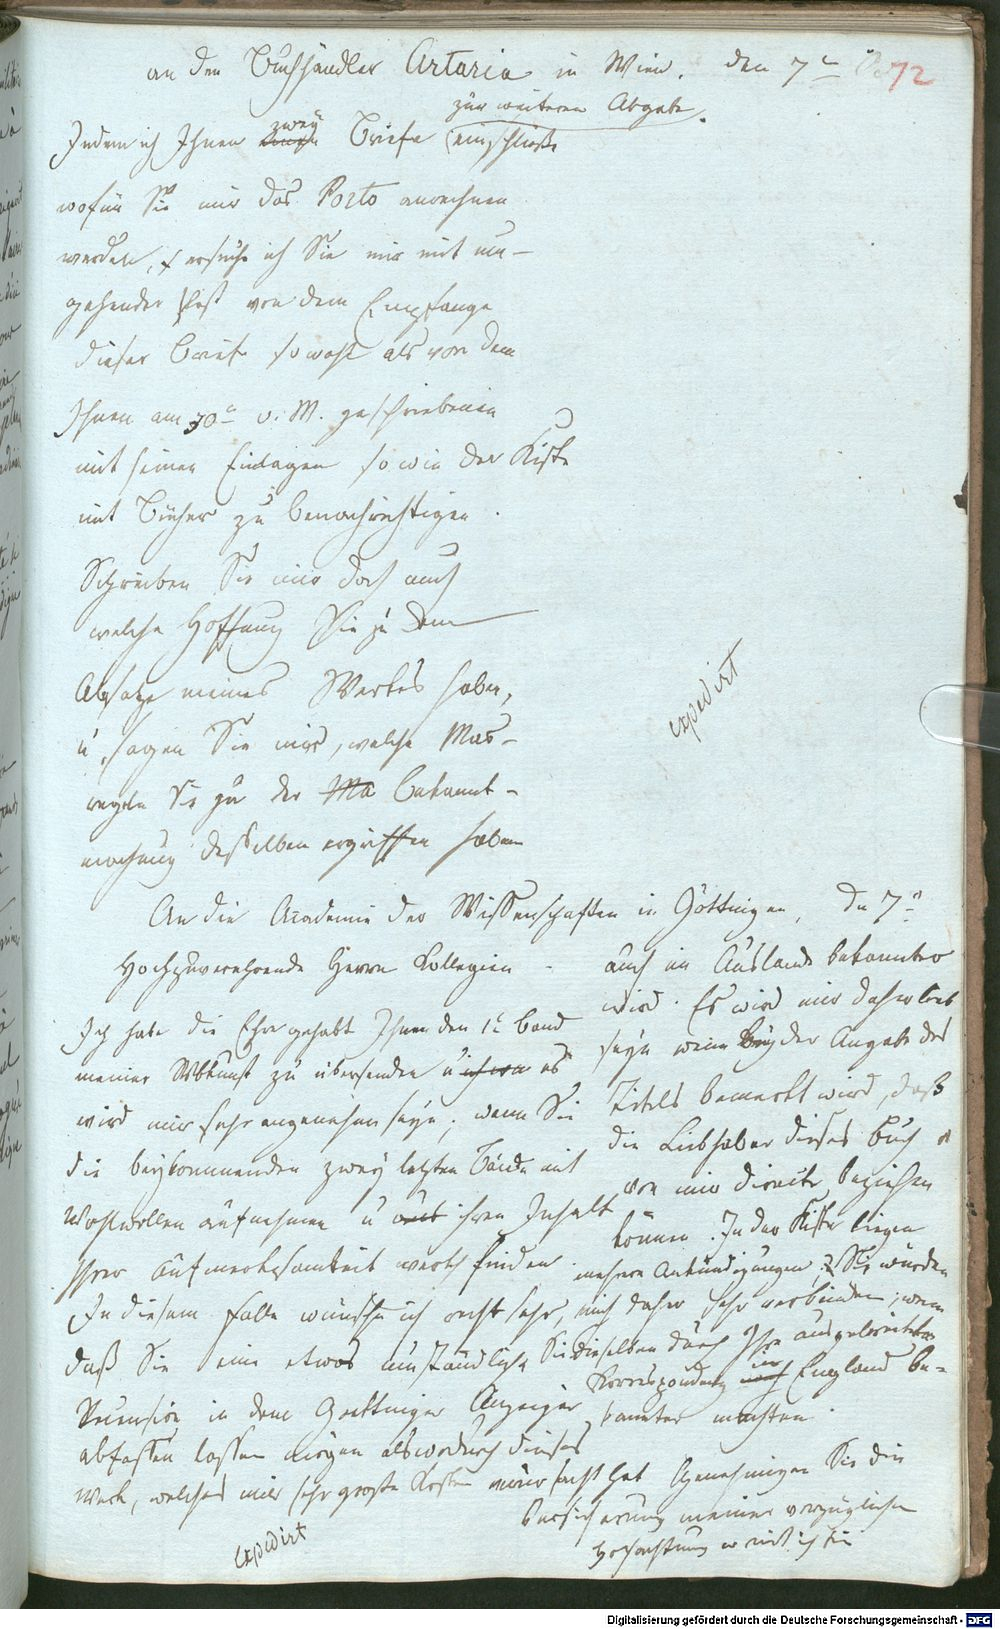 an den Buchhändler Artaria in Wien. den 7n
72
zur weiteren Abgabe.
Indem ich Ihnen zwey Briefe einschließe
wofür Sie mir das Porto anrechnen
werden, ersuche ich Sie mir mit um-
gehender Post von dem Empfange
dieser Briefe sowohl als von dem
Ihnen am 30n v. M. geschriebenen
mit seinen Einlagen sowie der Kiste
mit Bücher zu benachrichtigen.
Schreiben Sie mir doch auch
welche Hoffnung Sie zu dem
Absatze meines Werkes haben,
u. sagen Sie mir, welche Mas-
regeln Sie zu der Ma bekannt-
machung desselben ergriffen haben
expedirt
An die Academie der Wissenschaften in Göttingen, den 7n
Hochzuverehrende Herrn Collegien
Ich habe die Ehre gehabt Ihnen den 1n Band
meiner zu übersenden u es
wird mir sehr angenehm seyn, wenn Sie
die beykommenden zwey letzten Bände mit
Wohlwollen aufnehmen u ihren Inhalt
Ihrer Aufmerksamkeit werth finden
In diesem Falle wünsche ich recht sehr,
daß Sie eine etwas umständliche
Recension in dem Goettinger Anzeiger
abfassen lassen mögen als wodurch dieses
Werk, welches mir sehr große Kosten verursacht hat
expedirt
auch im Auslande bekannter
wird. Es wird mir daher lieb
seyn wenn bey der Angabe des
Titels bemerkt wird, daß
die Liebhaber dieses Buch
von mir directe beziehen
können. In der Kiste liegen
mehrere Ankündigungen, Sie würden
mich daher sehr verbinden, wenn
Sie dieselben durch Ihre ausgebreitete
Korrespondenz in England be-
kannter machten.
Genehmigen Sie die
Versicherung meiner vorzüglichen
Hochachtung womit ich bin
Digitalisierung gefördert durch die Deutsche Forschungsgemeinschaft - DFG